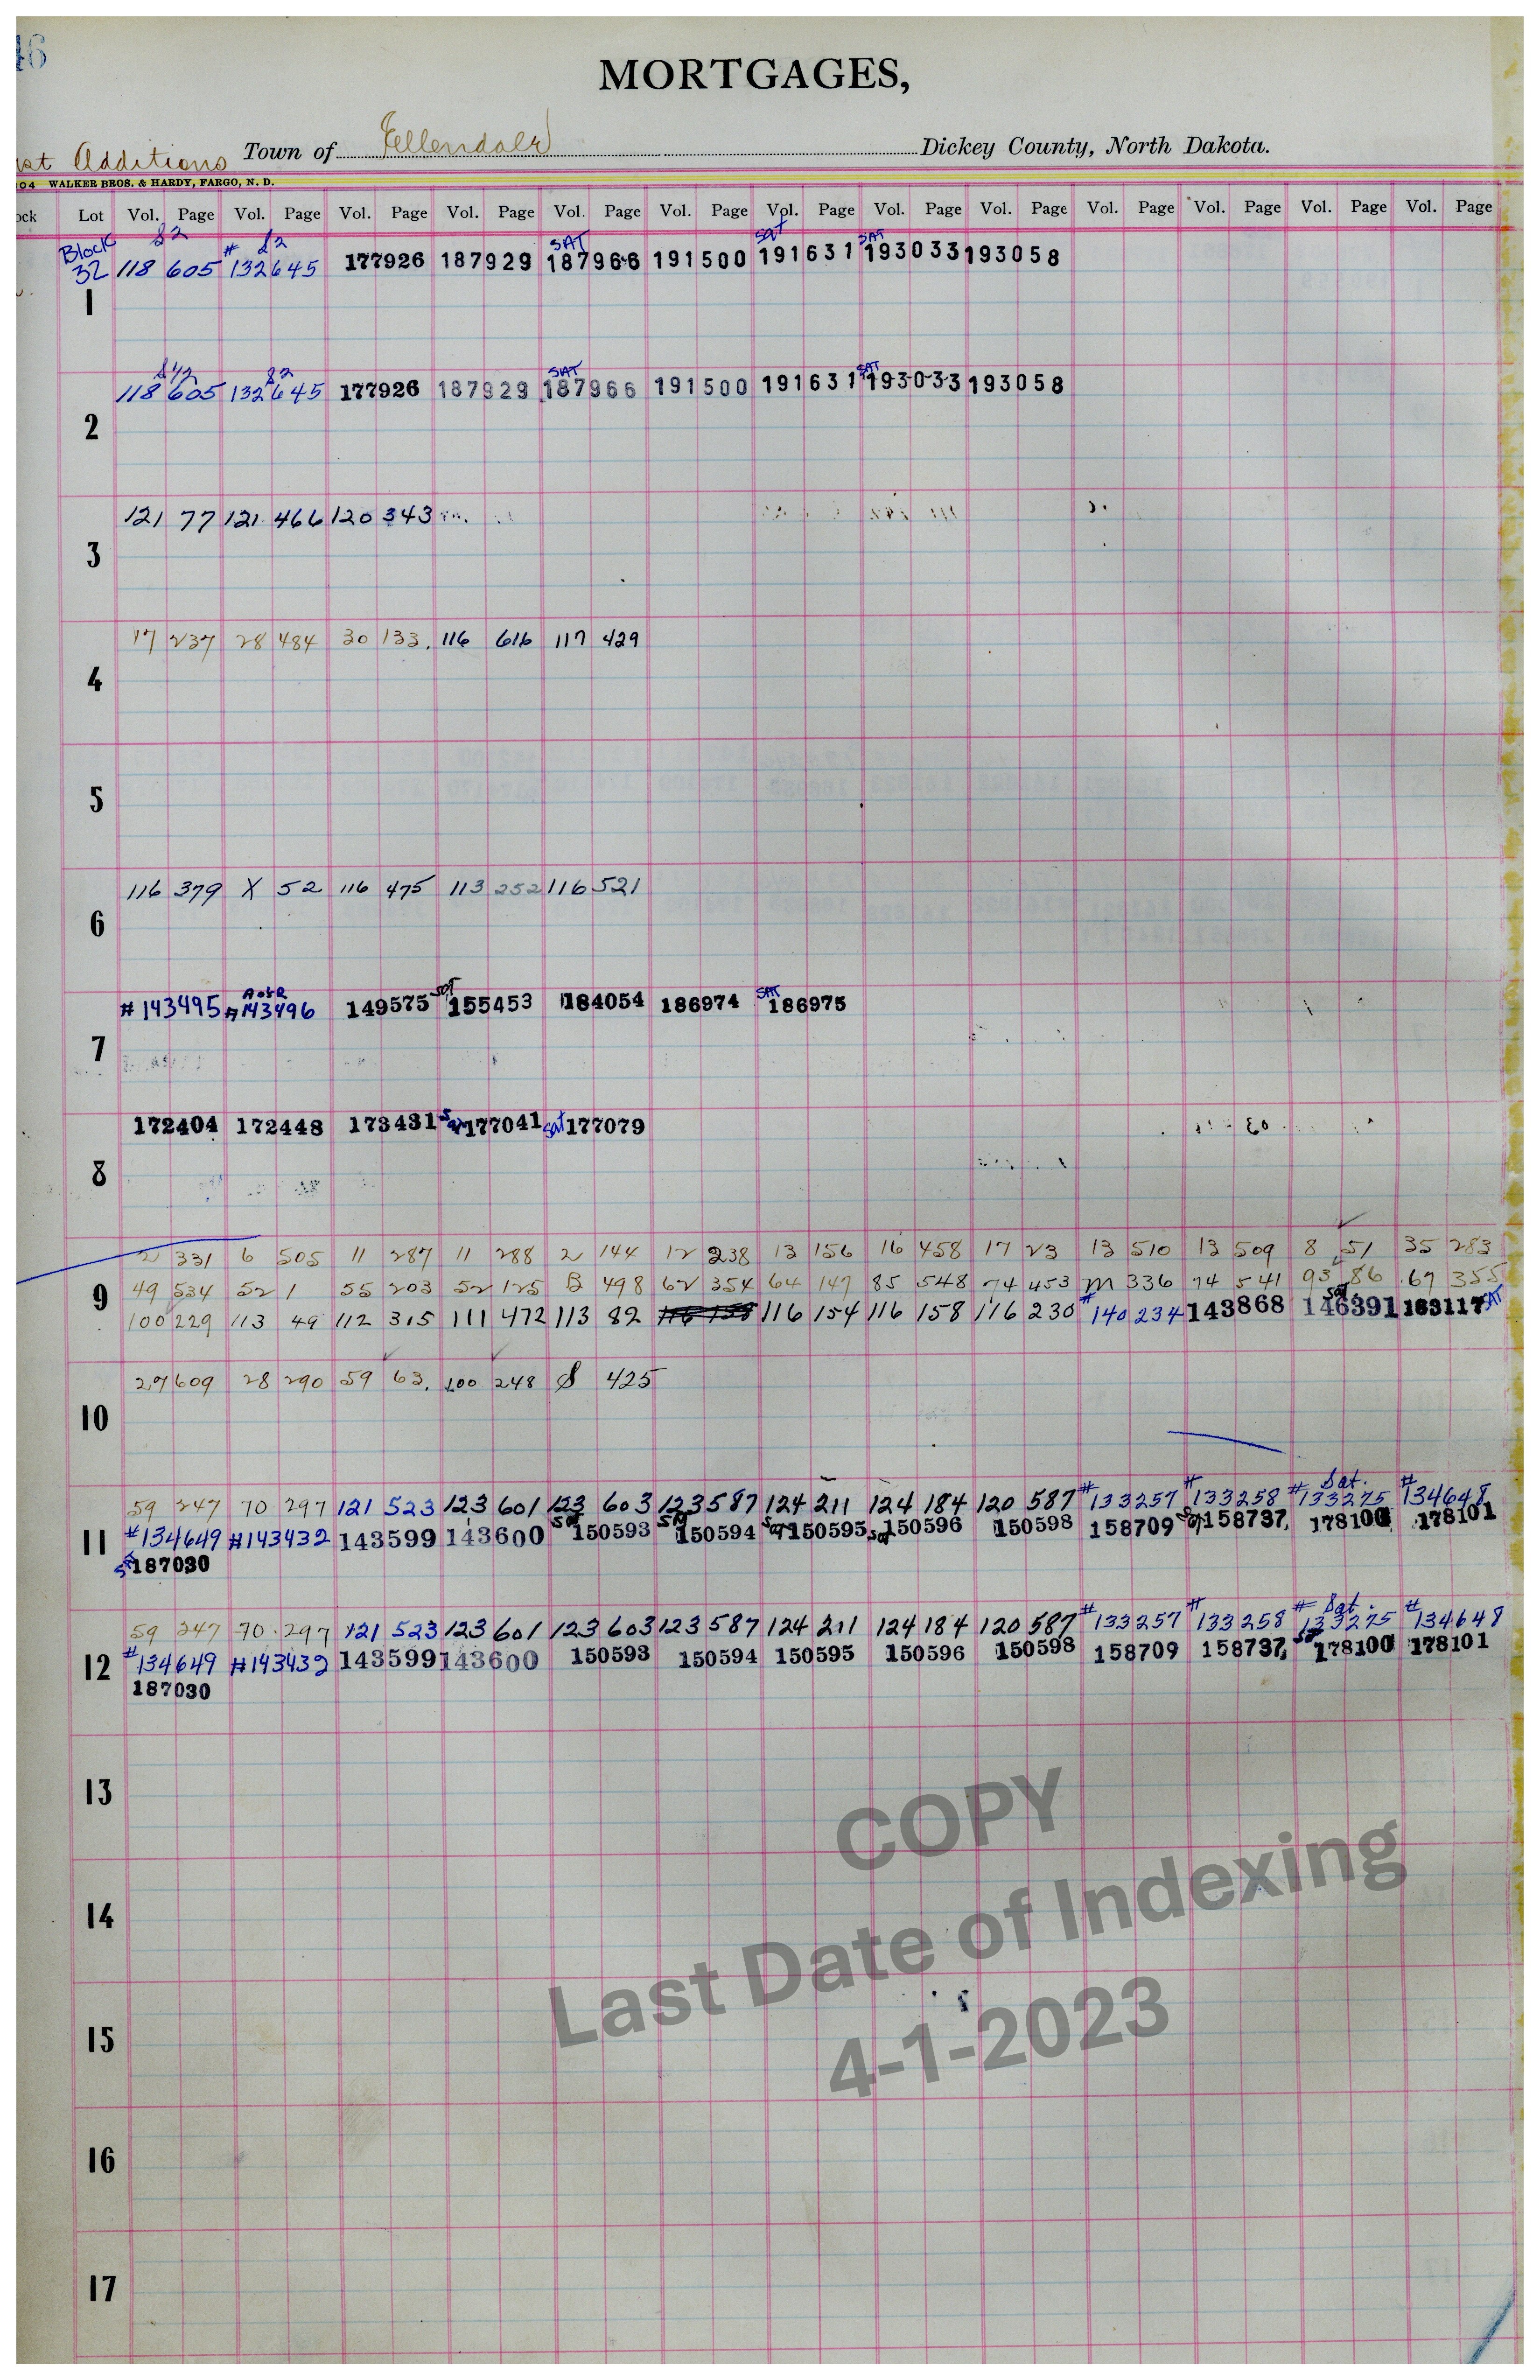 46
MORTGAGES,
Additions Town of Ellendale Dickey County, North Dakota.
04 WALKER BROS. & HARDY, FARGO, N. D.
ock Lot Vol. Page Vol. Page Vol. Page Vol. Page Vol. Page Vol. Page Vol. Page Vol. Page Vol. Page Vol. Page Vol. Page Vol. Page Vol. Page
Block S2 # S2 SAT Sat SAT
32 118 605 132645 177926 187929 187966 191500 191631 193033 193058
1
S1/2 S2 SAT SAT
118 605 132645 177926 187929 187966 191500 191631 193033 193058
2
121 77 121 466 120 343
3
17 237 28 484 30 133 116 616 117 429
4
5
116 379 X 52 116 475 113 252 116 521
6
A of R Sat SAT
#143495 #143496 149575 155453 184054 186974 186975
7
172404 172448 173431 Sat 177041 Sat 177079
8
2 331 6 505 11 287 11 288 2 144 12 238 13 156 16 458 17 23 13 510 13 509 8 51 35 283
49 534 52 1 55 203 52 125 B 498 62 354 64 147 85 548 74 453 M 336 74 541 93 86 67 355
9
100 229 113 49 112 315 111 472 113 82 116 158 116 154 116 158 116 230 #140234 143868 Sat 146391 163117 SAT
27 609 28 290 59 63 100 248 S 425
10
59 247 70 297 121 523 123 601 123 603 123 587 124 211 124 184 120 587 #133257 #133258 #133275 Sat. #134648
11 #134649 #143432 143599 143600 Sat 150593 Sat 150594 Sat 150595 Sat 150596 150598 158709 Sat 158737 178100 178101
Sat 187030
59 247 70 297 121 523 123 601 123 603 123 587 124 211 124 184 120 587 #133257 #133258 #133275 Sat. #134648
12 #134649 #143432 143599 143600 150593 150594 150595 150596 150598 158709 158737 Sat 178100 178101
187030
13
14
15
16
17
COPY
Last Date of Indexing
4-1-2023